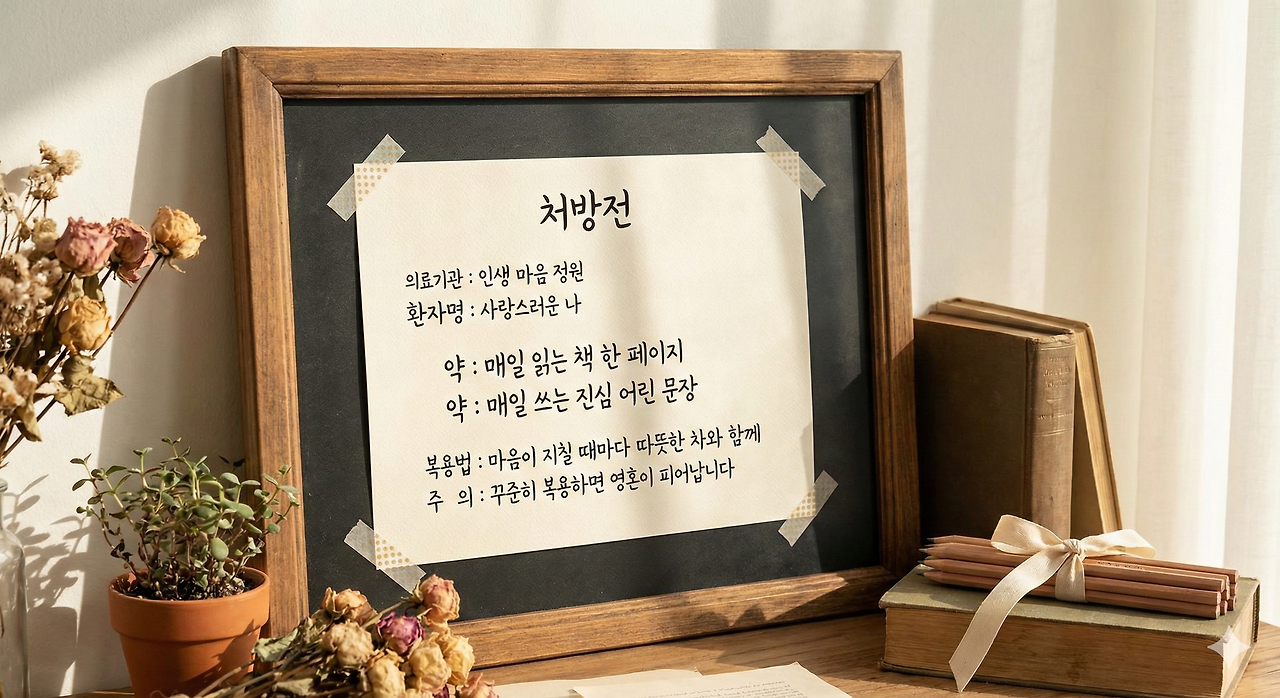 처방전
의료기관 : 인생 마음 정원
환자명 : 사랑스러운 나
약 : 매일 읽는 책 한 페이지
약 : 매일 쓰는 진심 어린 문장
복용법 : 마음이 지칠 때마다 따뜻한 차와 함께
주 의 : 꾸준히 복용하면 영혼이 피어납니다